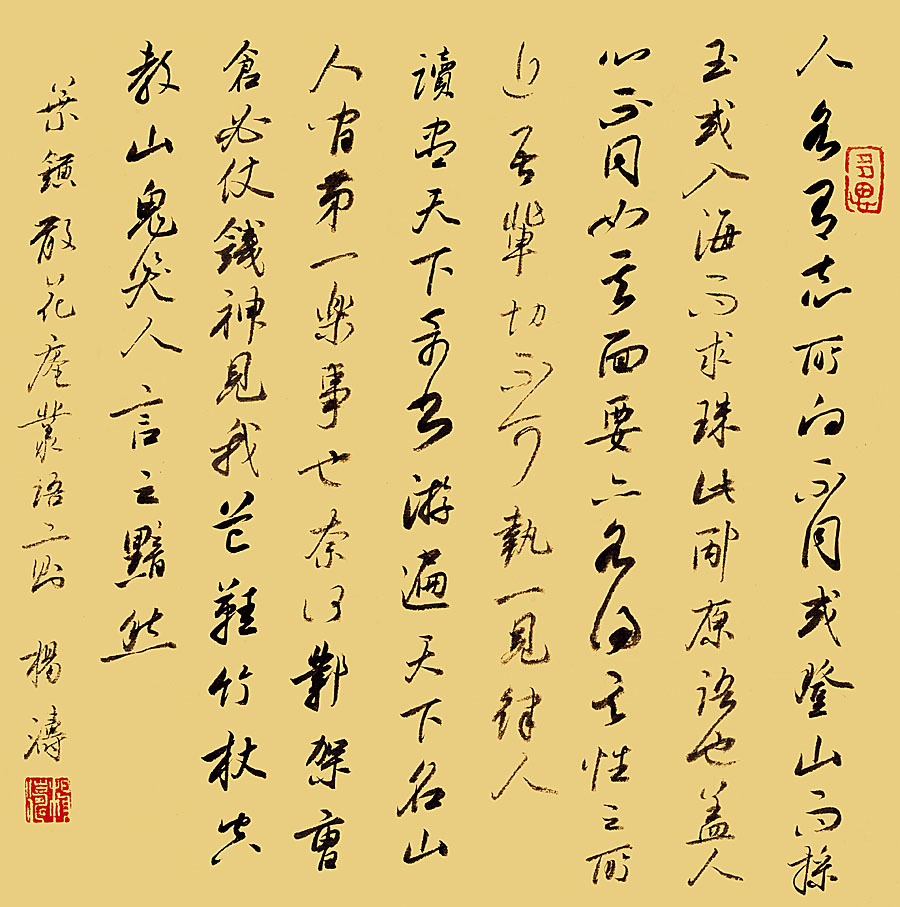 人各有志所向不同或登山而採
玉或入海而求珠此邴原語也蓋人
心不同如其面要亦各得其性之所
近吾輩切不可執一見律人
讀盡天下奇書游遍天下名山
人間第一樂事也奈何鄴架曹
倉必仗錢神見我芒鞋竹杖空
教山鬼笑人言之黯然
葉鐄散花庵叢語二則 楊濤